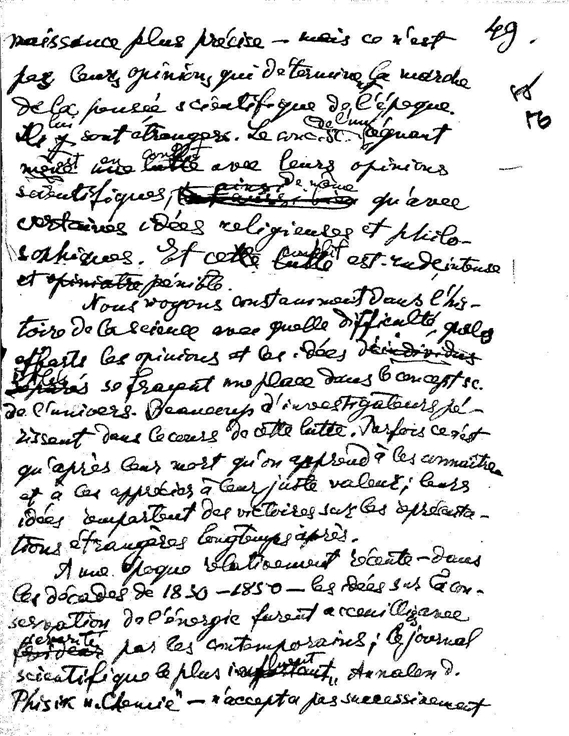 49.
naissance plus précise – mais ce n'est
pas leurs opinions qui détermine la marche
de la pensée scientifique de l'époque.
Ils lui sont étrangers. Le conc. sc. de l'un. régnant
est en conflit avec leurs opinions
scientifiques, ainsi de même qu'avec
certaines idées religieuses et philo-
sophiques. Et ce conflit est rude, intense
et pénible.
Nous voyons constamment dans l'his-
toire de la science avec quelle difficulté, quels
efforts les opinions et les idées
se frayent une place dans le concept sc.
de l'univers. Beaucoup d'investigateurs pé-
rissent dans le cours de cette lutte. Parfois ce n'est
qu'après leur mort qu'on apprend à les connaître
et à les apprécier à leur juste valeur; leurs
idées remportent des victoires sur les représenta-
tions étrangères longtemps après.
A une époque relativement récente – dans
les décades de 1830–1850 – les idées sur la con-
servation de l'énergie furent accueillies avec
sévérité par les contemporains; le journal
scientifique le plus influent, "Annalen d.
Phisik u. Chemie" – n'accepta pas successivement